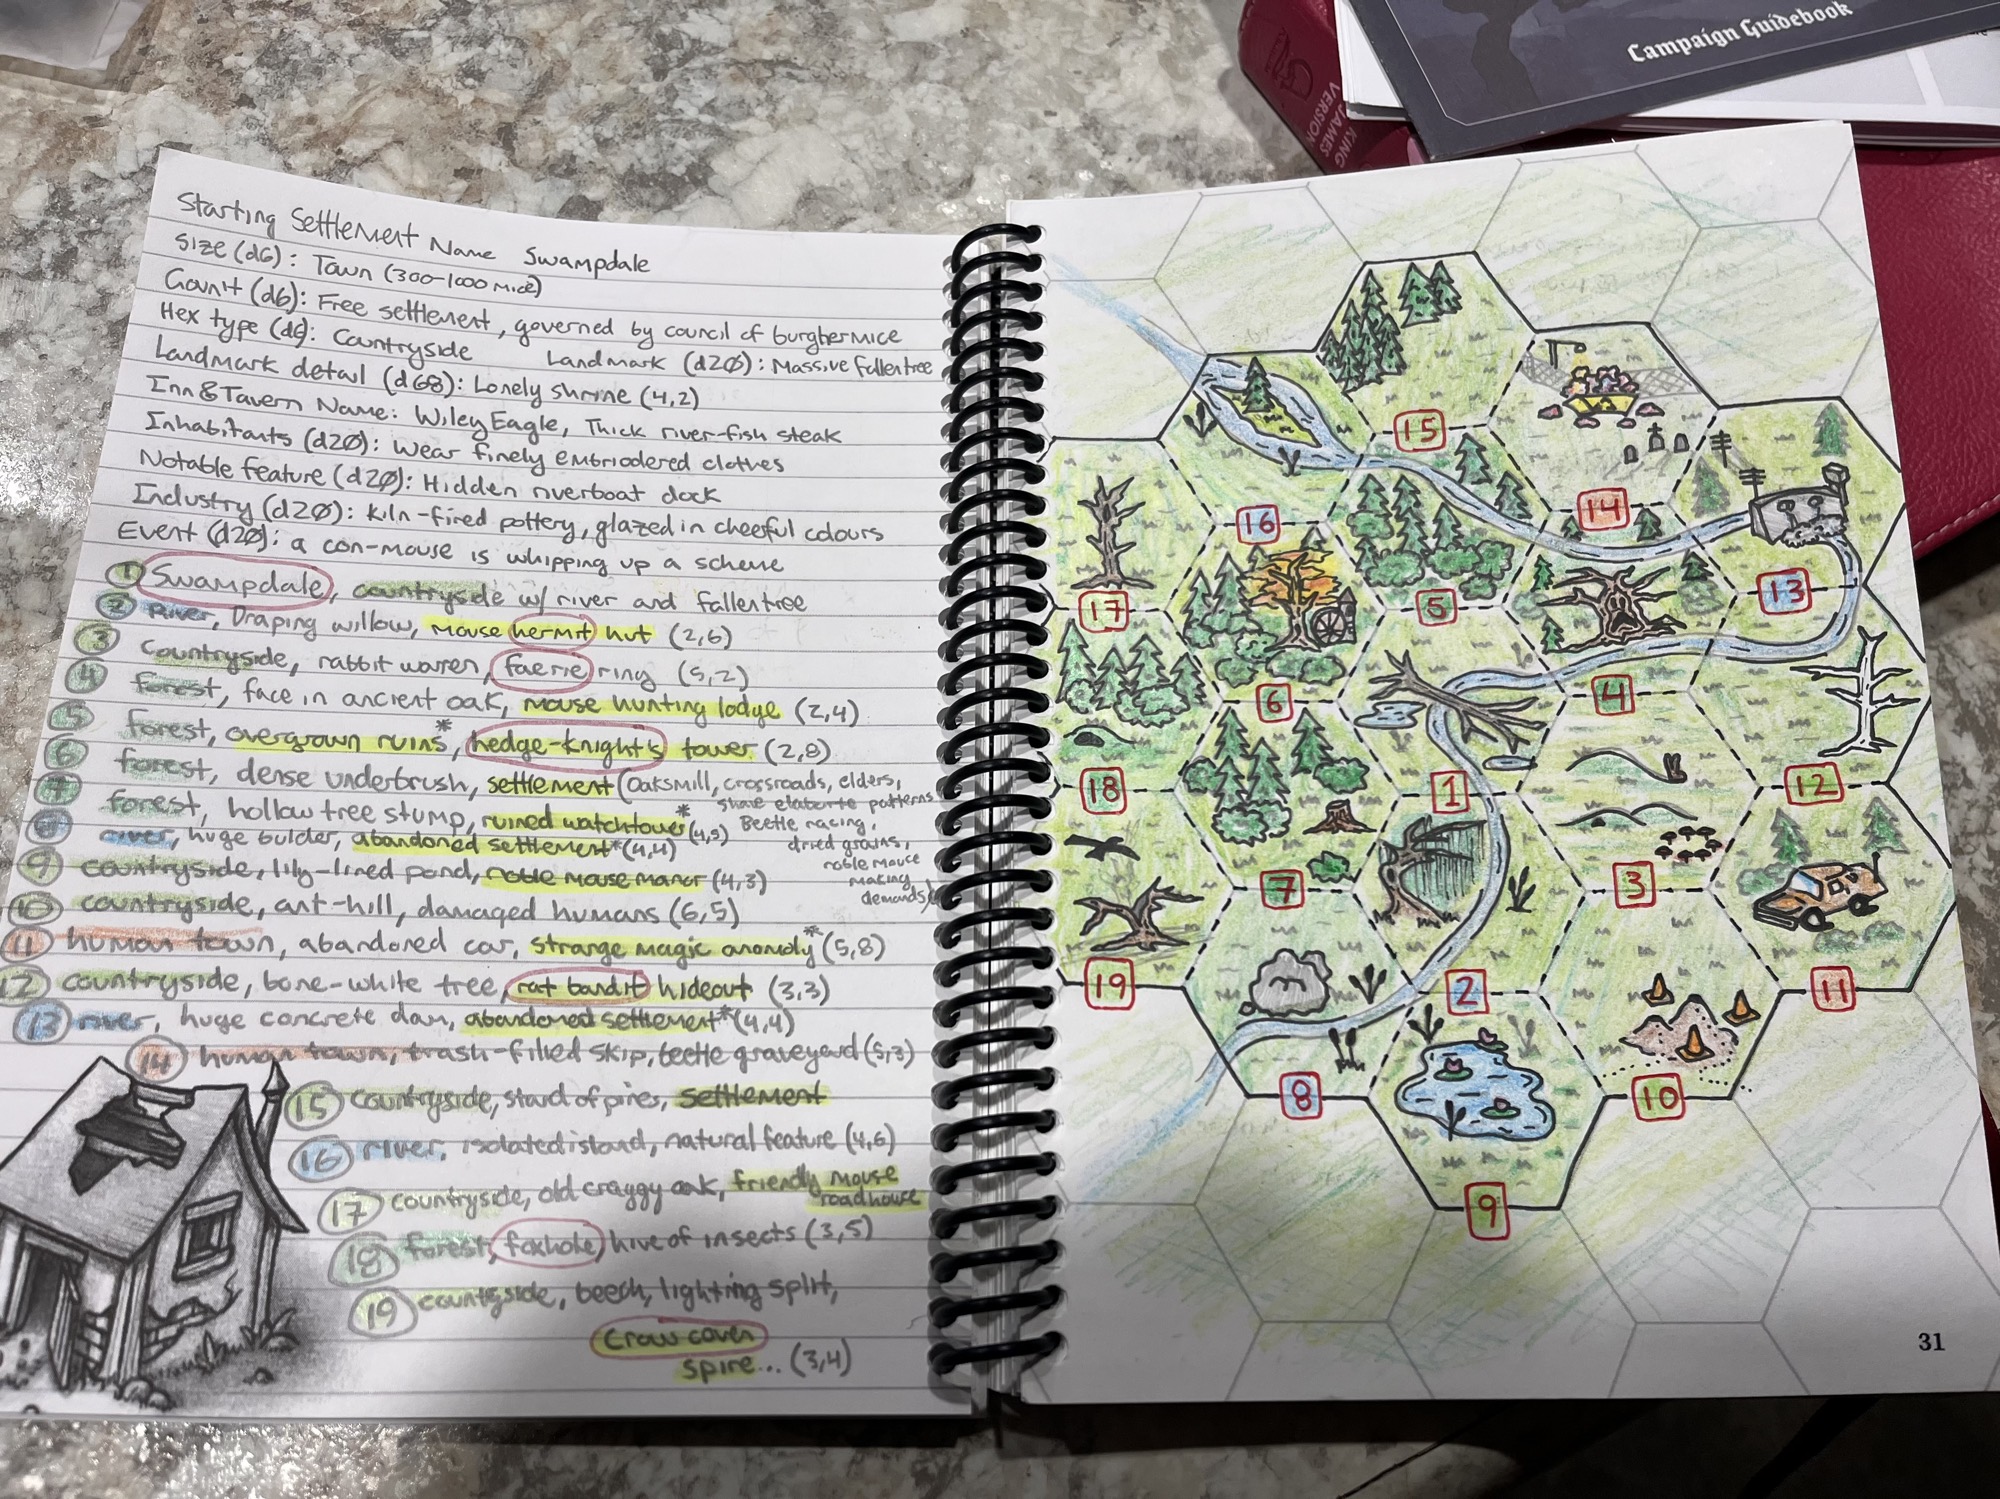 Starting Settlement Name Swampdale
Size (d6): Town (300-1000 mice)
Gov't (d6): Free settlement, governed by council of burghermice
Hex type (d6): Countryside Landmark (d20): Massive fallen tree
Landmark detail (d68): Lonely shrine (4,2)
Inn & Tavern Name: Wiley Eagle, Thick river-fish steak
Inhabitants (d20): Wear finely embriodered clothes
Notable feature (d20): Hidden riverboat dock
Industry (d20): Kiln-fired pottery, glazed in cheeful colours
Event (d20): a con-mouse is whipping up a scheme
1 Swampdale, countryside w/ river and fallen tree
2 river, Draping willow, mouse hermit hut (2,6)
3 Countryside, rabbit warren, faerie ring (5,2)
4 forest, face in ancient oak, mouse hunting lodge (2,4)
5 forest, overgrown ruins*, hedge-knight's tower (2,8)
6 forest, dense underbrush, settlement (Oaksmill, crossroads, elders,
shave elaborte patterns
Beetle racing,
dried grains,
noble mouse
making
demands)
7 forest, hollow tree stump, ruined watchtower* (4,5)
8 river, huge bulder, abandoned settlement* (4,4)
9 countryside, lily-lined pond, noble mouse manor (4,3)
10 countryside, ant-hill, damaged humans (6,5)
11 human town, abandoned car, strange magic anomoly* (5,8)
12 countryside, bone-white tree, rat bandit hideout (3,3)
13 river, huge concrete dam, abandoned settlement* (4,4)
14 human town, trash-filled skip, beetle graveyard (5,3)
15 countryside, stand of pines, settlement
16 river, isolated island, natural feature (4,6)
17 countryside, old craggy oak, friendly mouse
roadhouse
18 forest, foxhole, hive of insects (3,5)
19 countryside, beech, lighting split,
Crow coven
spire... (3,4)
Campaign Guidebook
KING
JAMES
VERSION
15
14
16
13
17
5
6
4
18
1
12
7
3
19
2
11
8
10
9
31